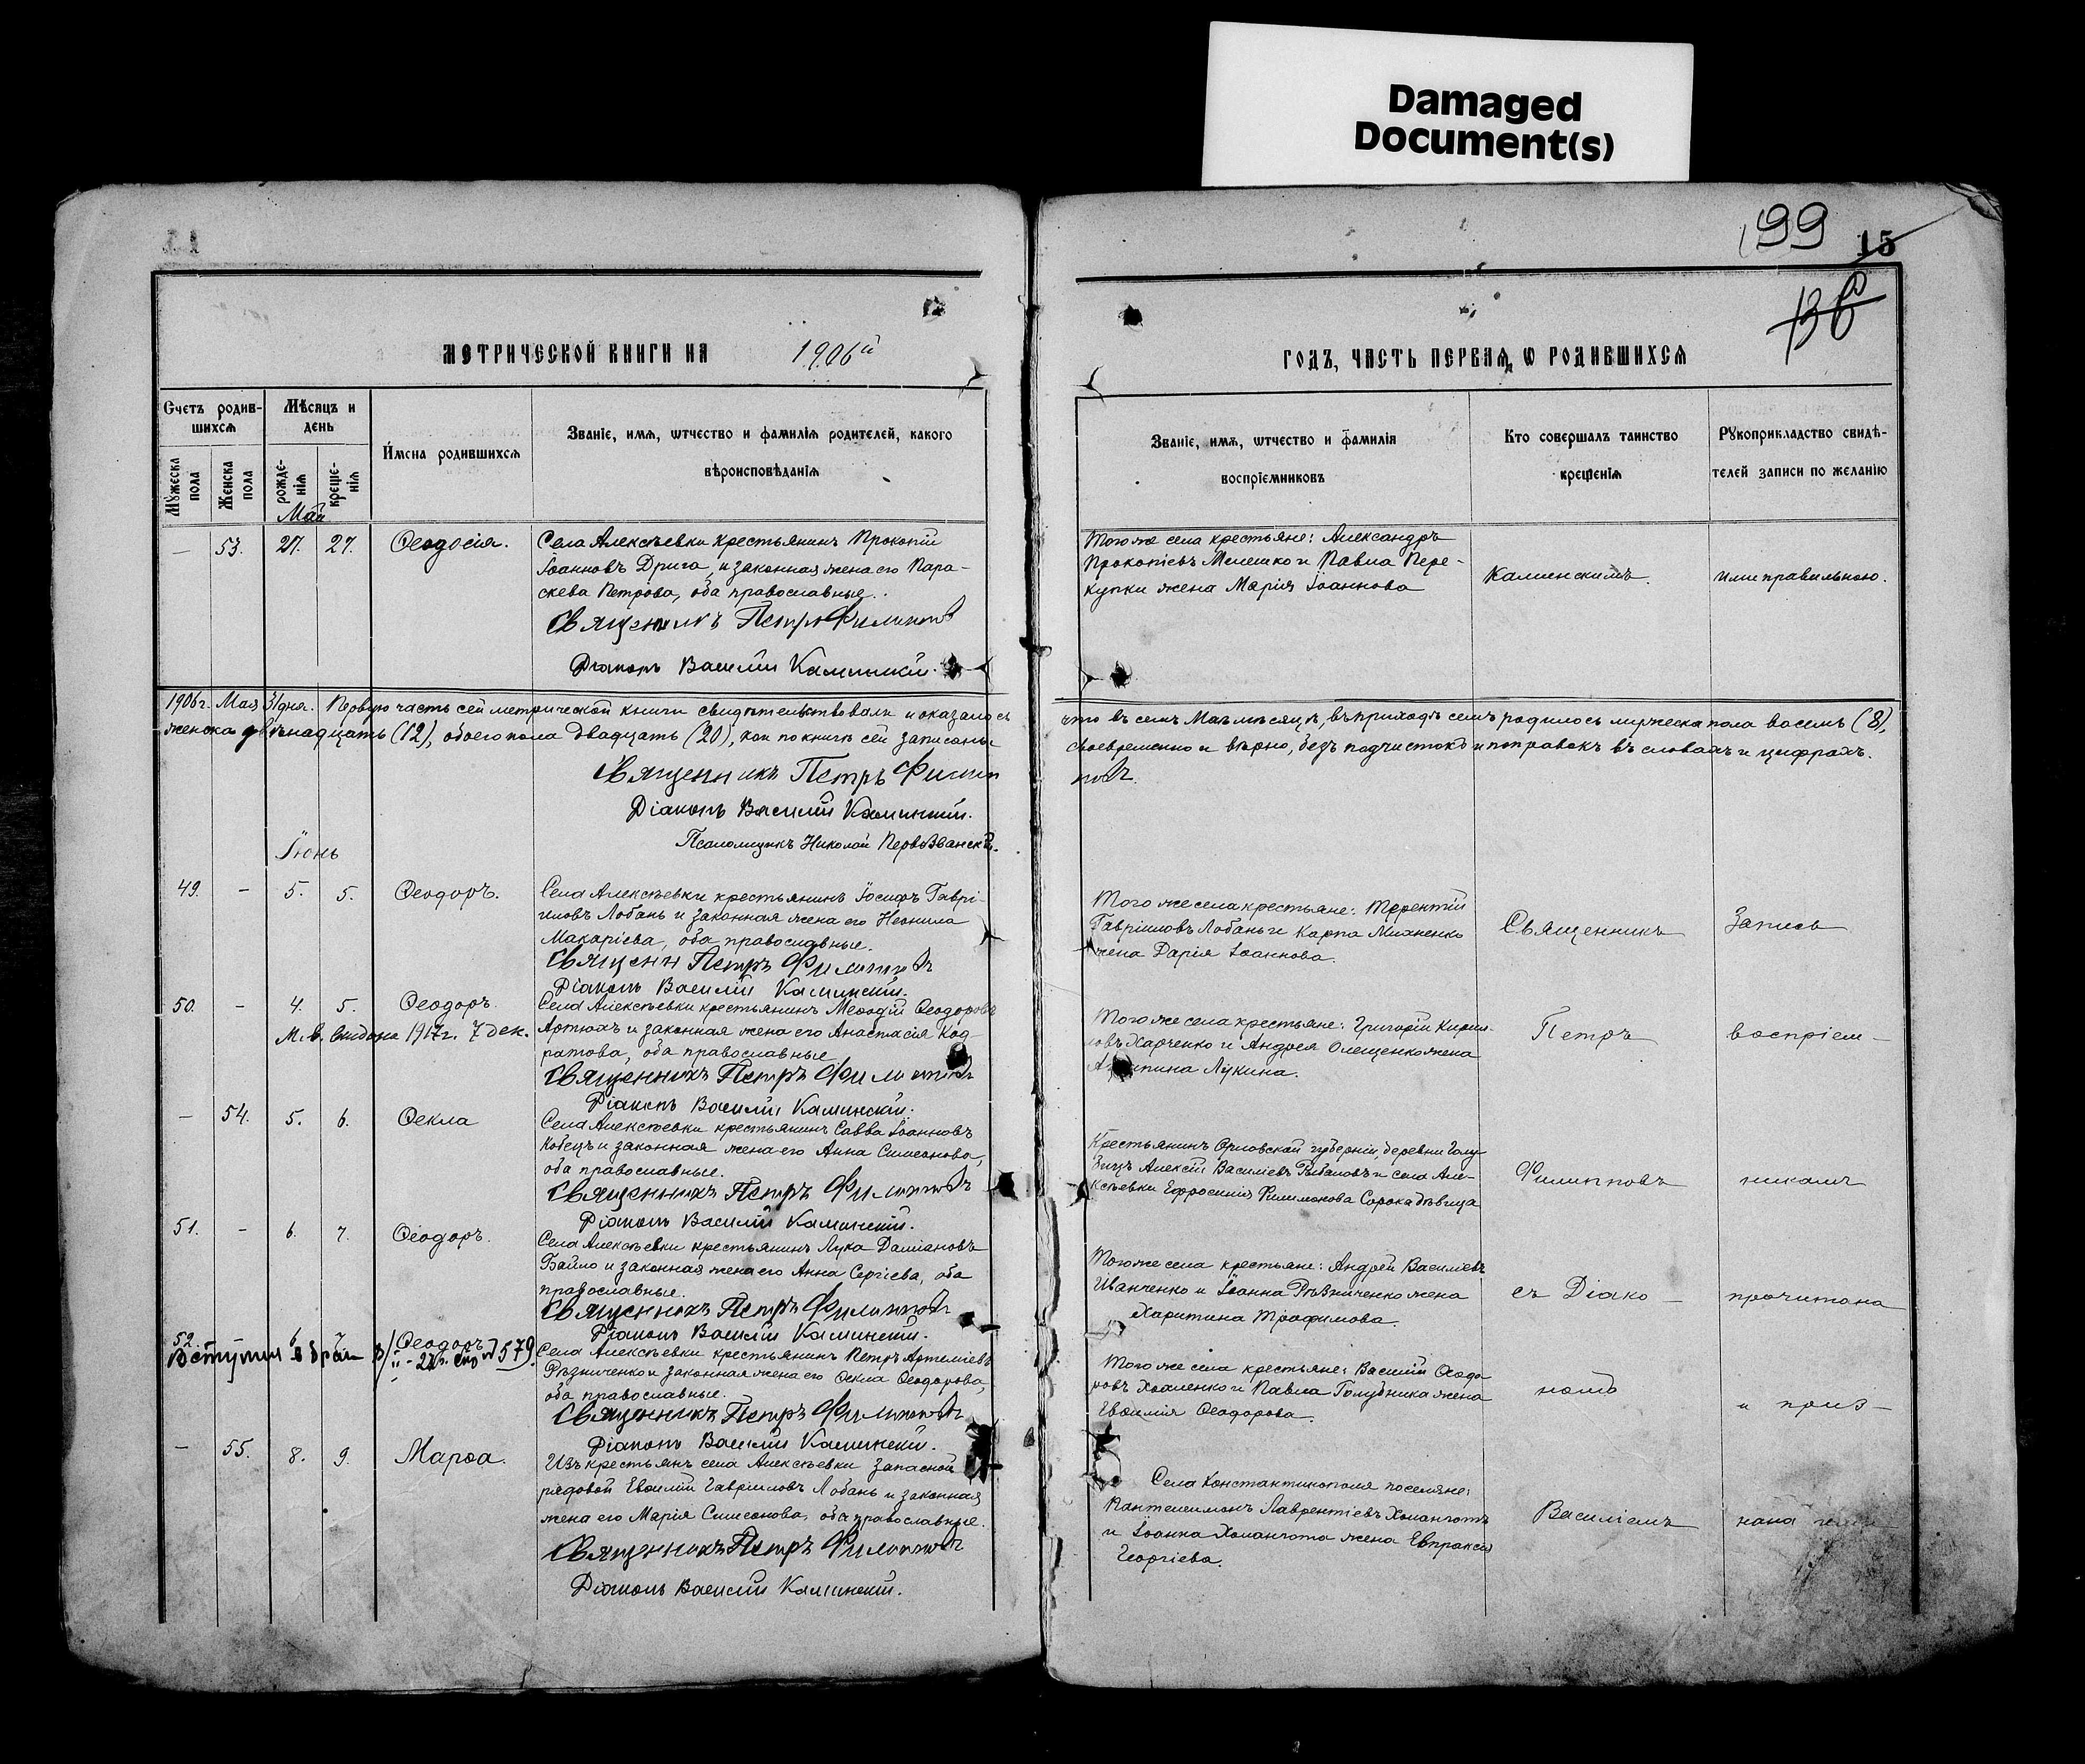 Damaged
Document(s)
199
15
136
МЕТРИЧЕСКОЙ КНИГИ НА 1906й
ГОДЪ, ЧАСТЬ ПЕРВАЯ, Ѡ РОДИВШИХСѦ
Счетъ родив-
шихсѧ
Мѣсяцъ и
день
Имена родившихсѧ
Званіе, имѧ, ѡтчество и фамиліѧ родителей, какого
вѣроисповѣданіѧ
Мꙋжеска
пола
Женска
пола
рожде-
ніѧ
креще-
ніѧ
Званіе, имѧ, ѡтчество и фамиліѧ
воспріемниковъ
Кто совершалъ таинство
крещеніѧ
Рꙋкоприкладство свидѣ-
телей записи по желанію
Май
— 53. 27. 27. Ѳеодосія.
Села Алексѣевки крестьянинъ Прокопій
Іоанновъ Дрига, и законная жена его Пара-
скева Петрова, оба православные.
Священникъ Петръ Филипповъ
Діаконъ Василій Каминскій.
Того же села крестьяне: Александръ
Прокопіевъ Мелешко и Павла Пере-
купки жена Марія Іоаннова
Каминскимъ.
ими правильною.
1906 г. Мая 31 дня. Первую часть сей метрической книги свидѣтельствовали и оказалось
что въ семъ Маѣ мѣсяцѣ, въ приходѣ семъ родилось мужеска пола восемь (8),
женска двѣнадцать (12), обоего пола двадцать (20), кои по книгѣ сей записаны
своевременно и вѣрно, безъ подчистокъ и поправокъ въ словахъ и цифрахъ.
Священникъ Петръ Филип
повъ
Діаконъ Василій Каминскій.
Псаломщикъ Николай Первозванскій.
Іюнь
49. – 5. 5. Ѳеодоръ.
Села Алексѣевки крестьянинъ Іосифъ Гаврі-
иловъ Лобань и законная жена его Неонила
Макаріева, оба православные.
Священн Петръ Филиповъ
Діаконъ Василій Каминскій.
Того же села крестьяне: Терентій
Гавріиловъ Лобань и Карпа Михненко
жена Дарія Іоаннова.
Священникъ
Запись
50. – 4. 5. Ѳеодоръ.
М. в. выдана 1917 г. 7 дек.
Села Алексѣевки крестьянинъ Меѳодій Ѳеодоровъ
Артюхъ и законная жена его Анастасія Код-
ратова, оба православные
Священникъ Петръ Филиповъ
Діаконъ Василій Каминскій.
Того же села крестьяне: Григорій Кирил-
ловъ Харченко и Андрея Олещенко жена
Лукина.
Петръ
воспріем-
– 54. 5. 6. Ѳекла
Села Алексѣевки крестьянинъ Савва Іоанновъ
Кобецъ и законная жена его Анна Симеонова,
оба православные.
Священникъ Петръ Филиповъ
Діаконъ Василій Каминскій.
Крестьянинъ Орловской губерніи, деревни
Алексѣй Василіевъ и села Але-
ксѣевки Евфросинія Филимонова Сорока дѣвица
Филипповъ
никами
51. – 6. 7. Ѳеодоръ.
Села Алексѣевки крестьянинъ Лука Даміановъ
Байло и законная жена его Анна Сергіева, оба
православные.
Священникъ Петръ Филиповъ
Діаконъ Василій Каминскій.
Того же села крестьяне: Андрей Василіевъ
Иванченко и Іоанна Рѣзниченко жена
Харитина Трофимова.
съ Діако-
прочитана
52. – 6. 7. Ѳеодоръ
Вступил в брак 579
Села Алексѣевки крестьянинъ Петръ Артеміевъ
Рѣзниченко и законная жена его Ѳекла Ѳеодорова,
оба православные.
Священникъ Петръ Филиповъ
Діаконъ Василій Каминскій.
Того же села крестьяне: Василій Ѳеодо-
ровъ Хоменко и Павла Голубника жена
Евѳимія Ѳеодорова.
номъ
и приз-
– 55. 8. 9. Марѳа.
Изъ крестьянъ села Алексѣевки запасной
рядовой Евѳимій Гавріиловъ Лобань и законная
жена его Марія Симеонова, оба православные.
Священникъ Петръ Филиповъ
Діаконъ Василій Каминскій.
Села Константинополя поселяне:
Пантелеимонъ Лаврентіевъ
и Іоанна жена Евпраксія
Георгіева.
Василіемъ